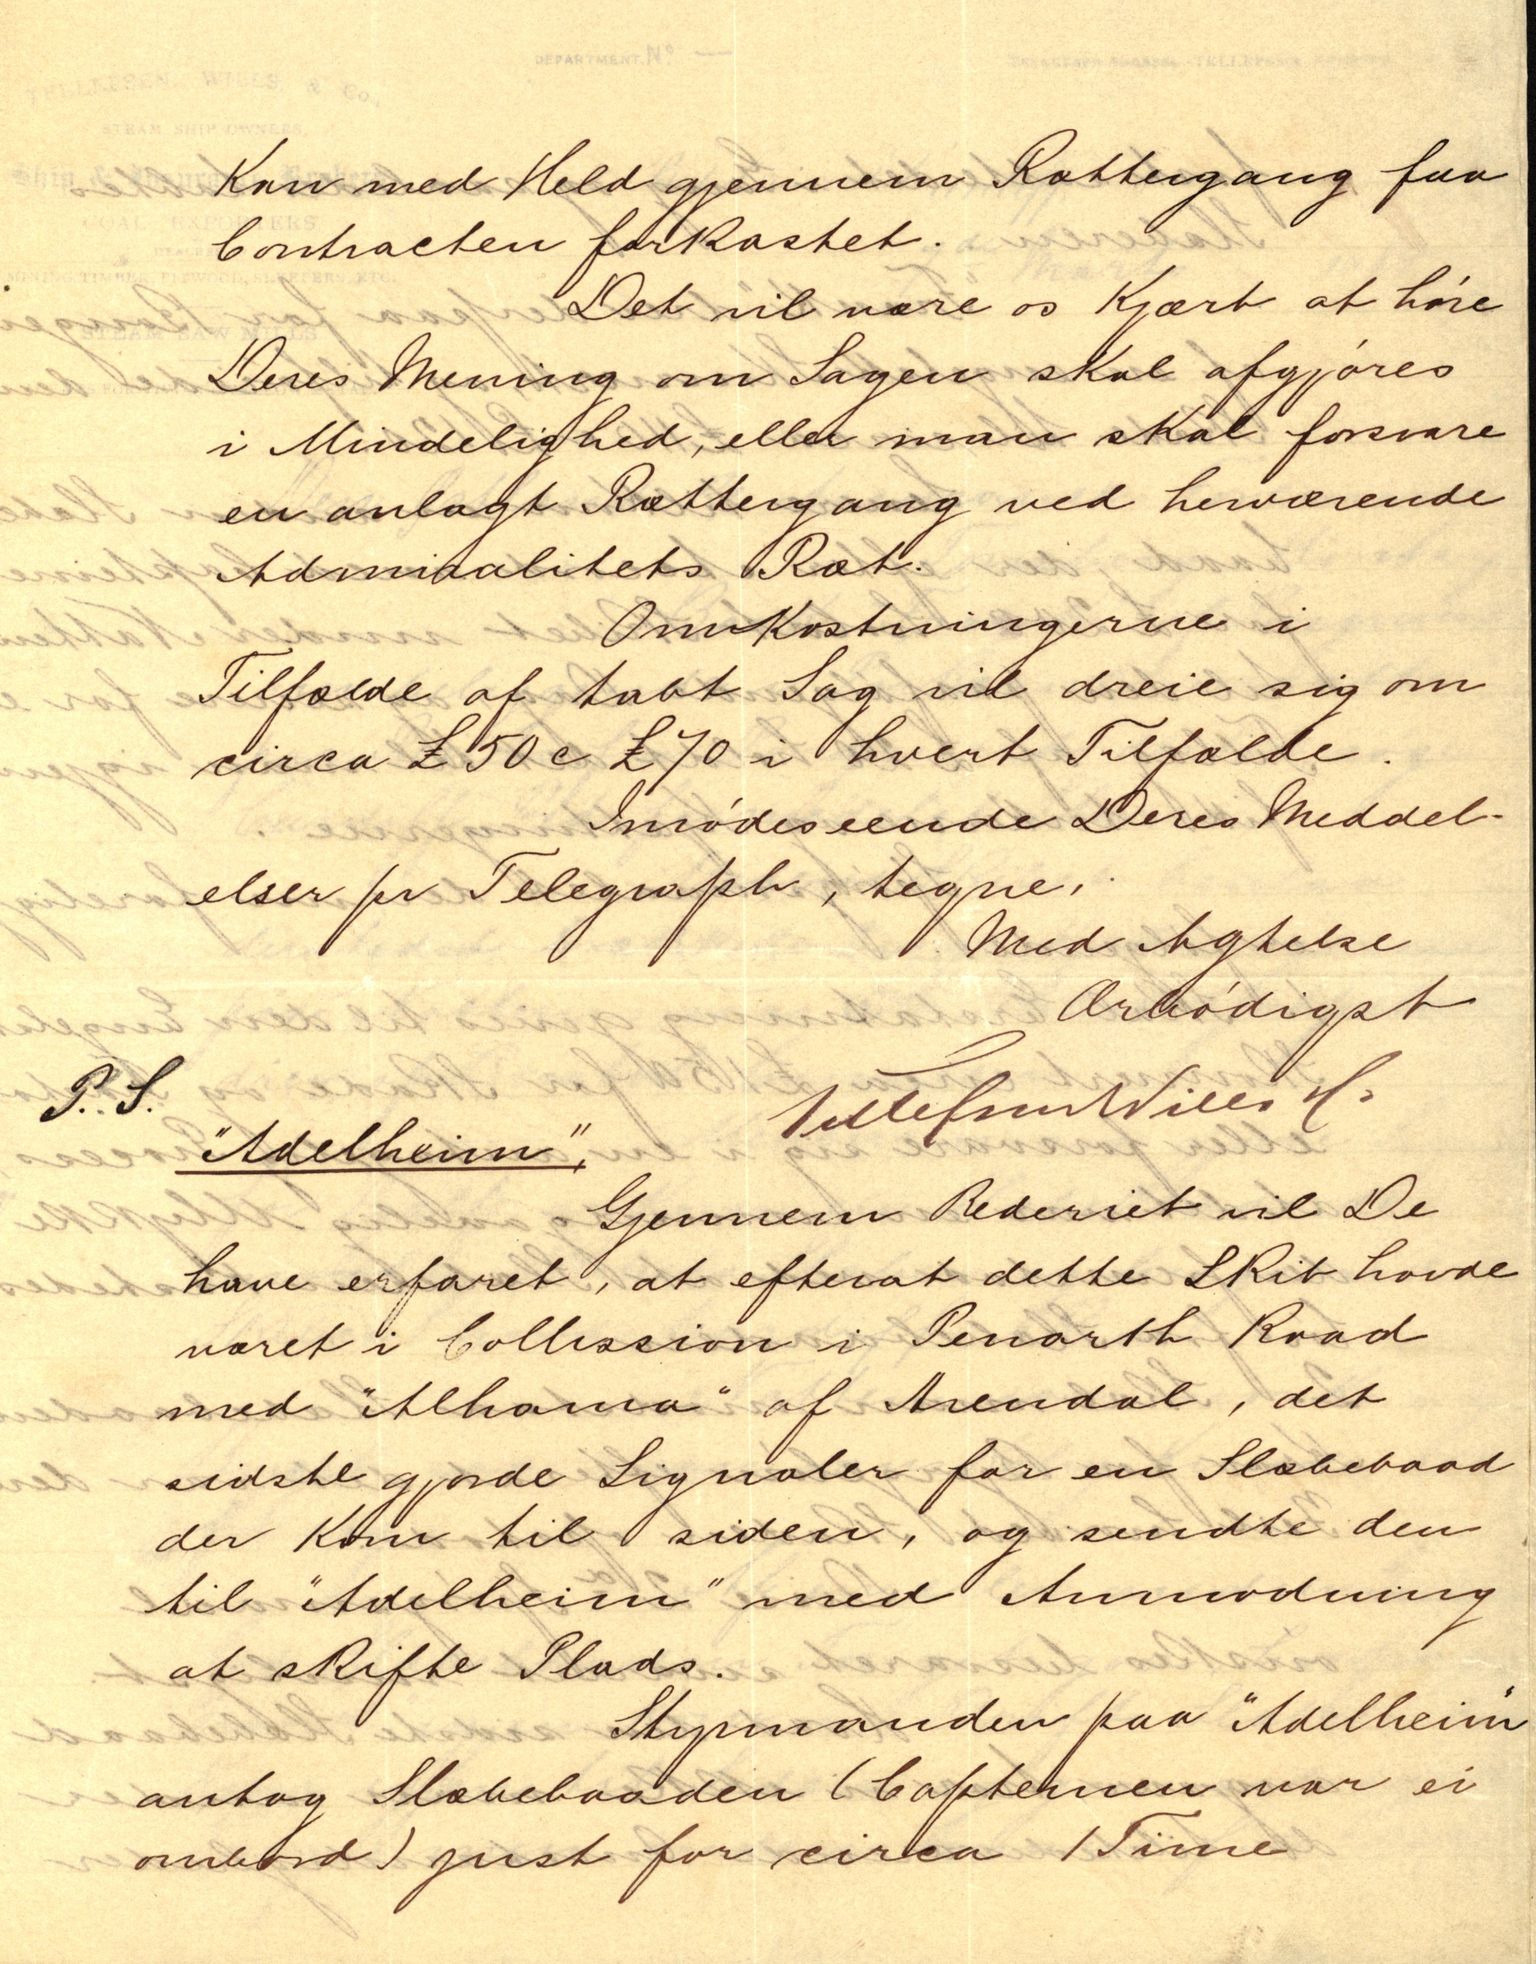 Kan med Held gjennem Rættergang faa
Contracten forkastet.
Det vil være os kjært at høre
Deres Mening om Sagen skal afgjøres
i Mindelighed, eller man skal forsvare
en anlagt Rættergang ved herværende
Admiralitets Ræt.
Omkostningerne i
Tilfælde af tabt Sag vil dreie sig om
circa £50 c £70 i hvert Tilfælde.
Imødeseende Deres Meddel-
elser pr Telegraph, tegne,
Med Agtelse
Ærbødigst
Tellefsen Wills & Co
P.S.
"Adelheim",
Gjennem Rederiet vil De
have erfaret, at efterat dette Skib havde
været i Collission i Penarth Road
med "Alhama" af Arendal, det
sidste gjorde Signaler for en Slæbebaad
der kom til siden, og sendte den
til "Adelheim" med Anmodning
at skifte Plads.
Styrmanden paa "Adelheim"
antog Slæbebaaden (Capteinen var ei
ombord) just for circa 1 Time